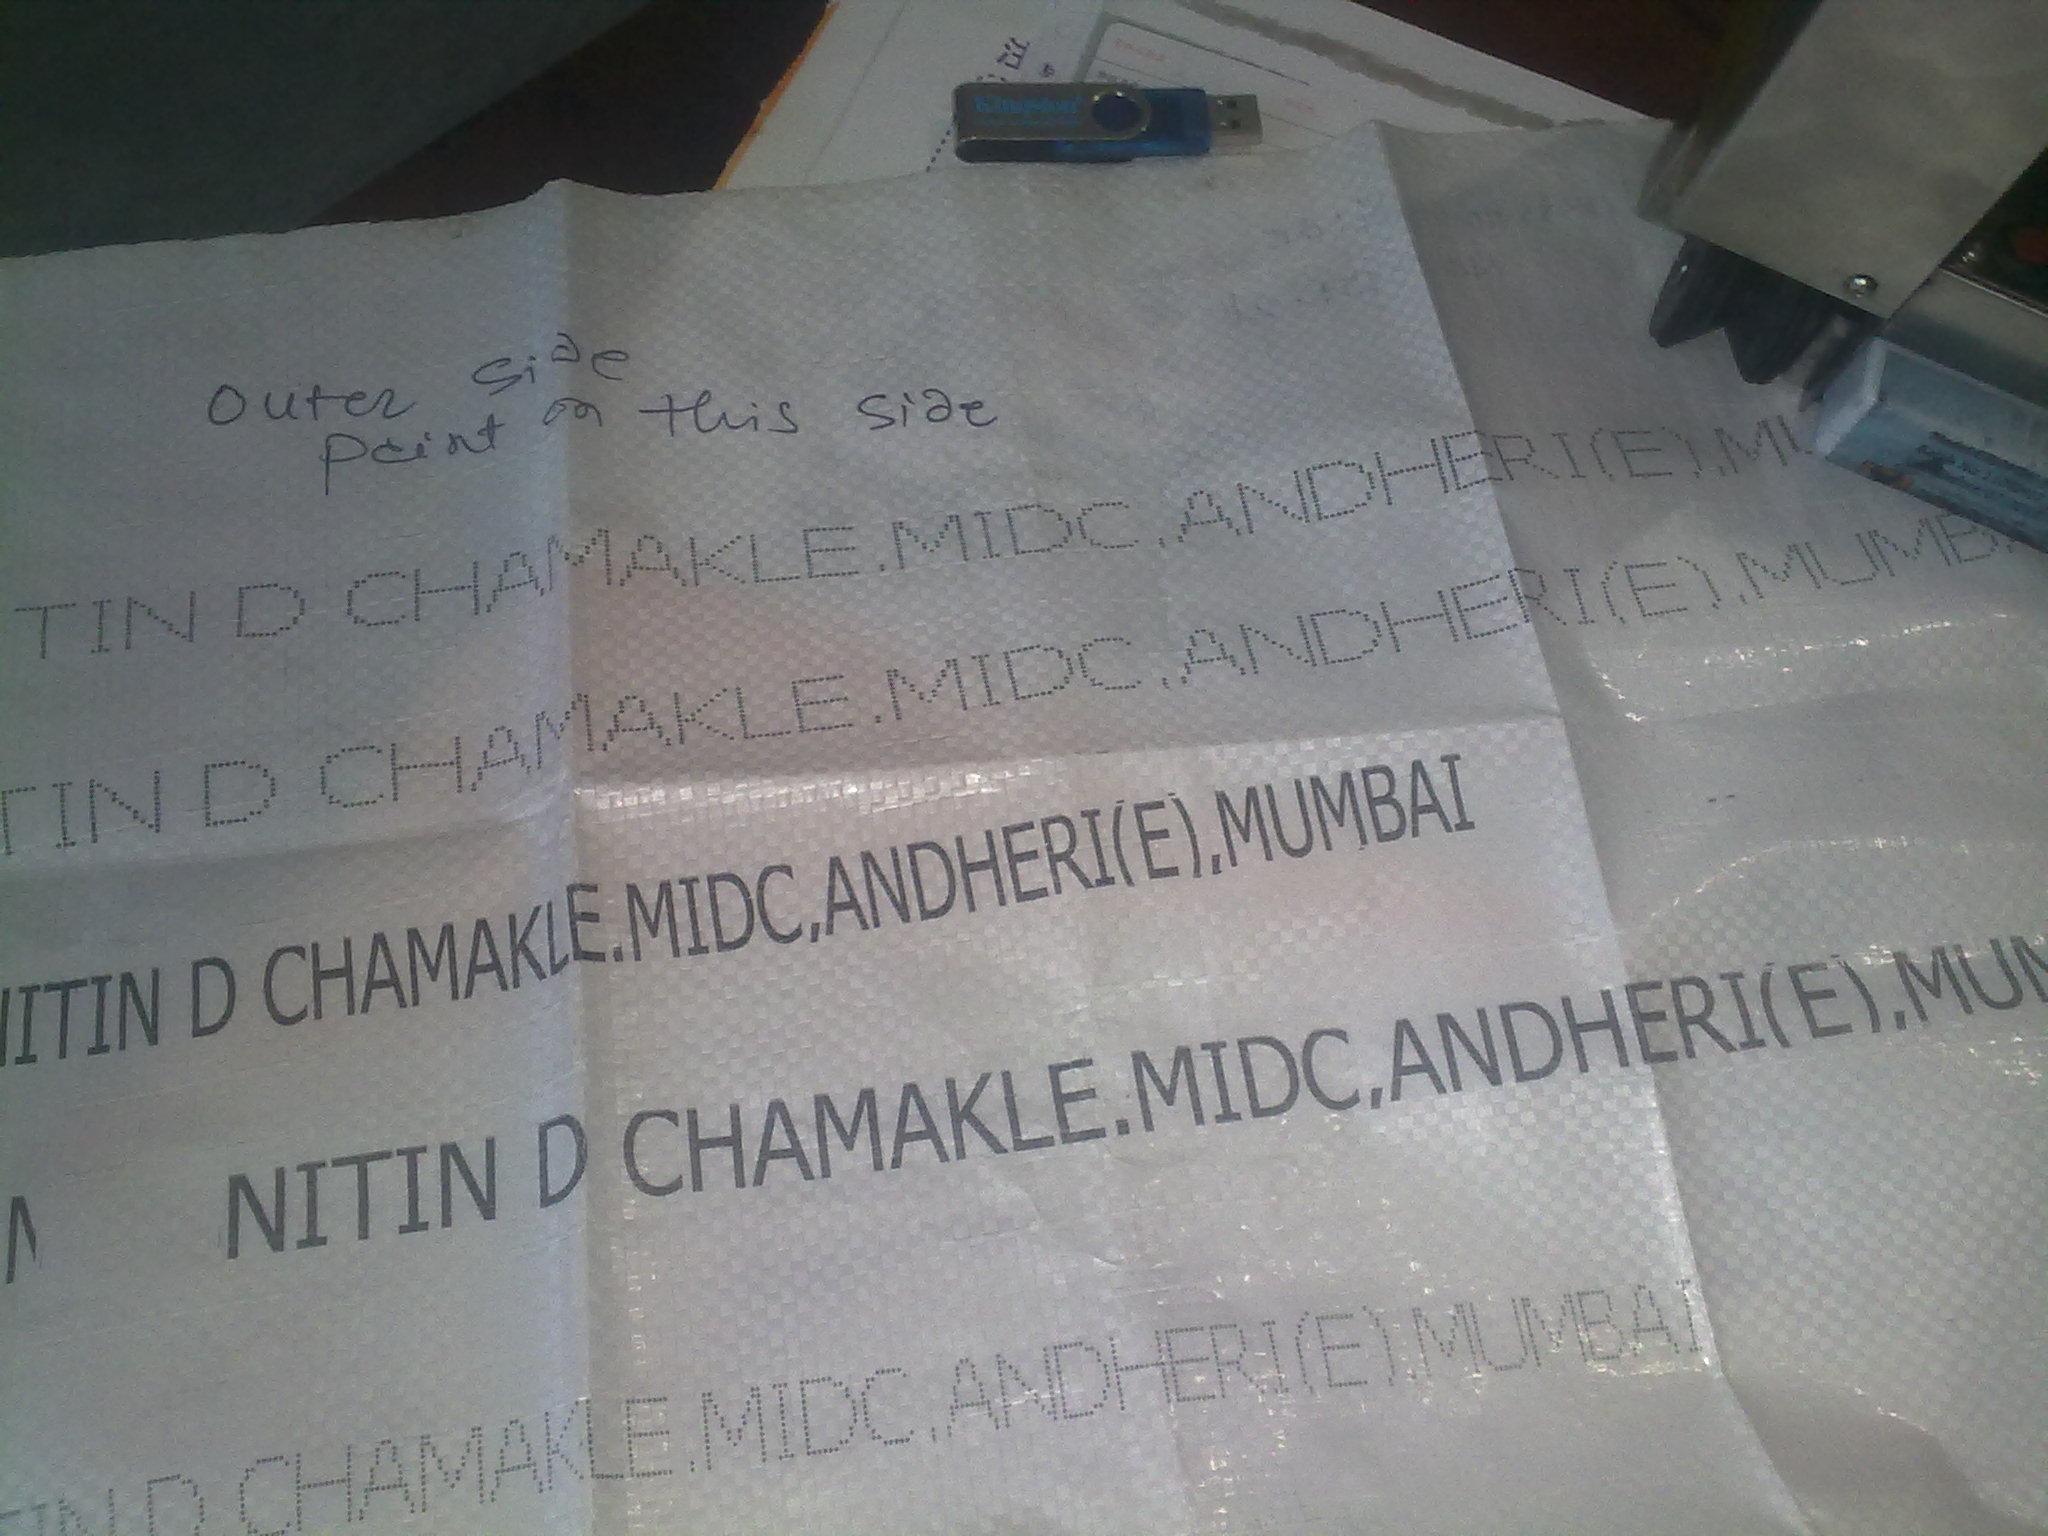 Kingston
Outer side
paint on this side
TIN D CHAMAKLE.MIDC,ANDHERI(E),MU
TIN D CHAMAKLE.MIDC,ANDHERI(E),MUMBA
NITIN D CHAMAKLE.MIDC,ANDHERI(E),MUMBAI
N NITIN D CHAMAKLE.MIDC,ANDHERI(E),MUM
IN D CHAMAKLE.MIDC,ANDHERI(E),MUMBAI